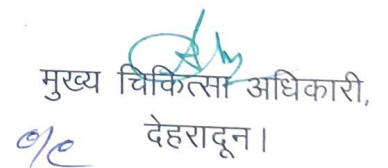 मुख्य चिकित्सा अधिकारी,
देहरादून।